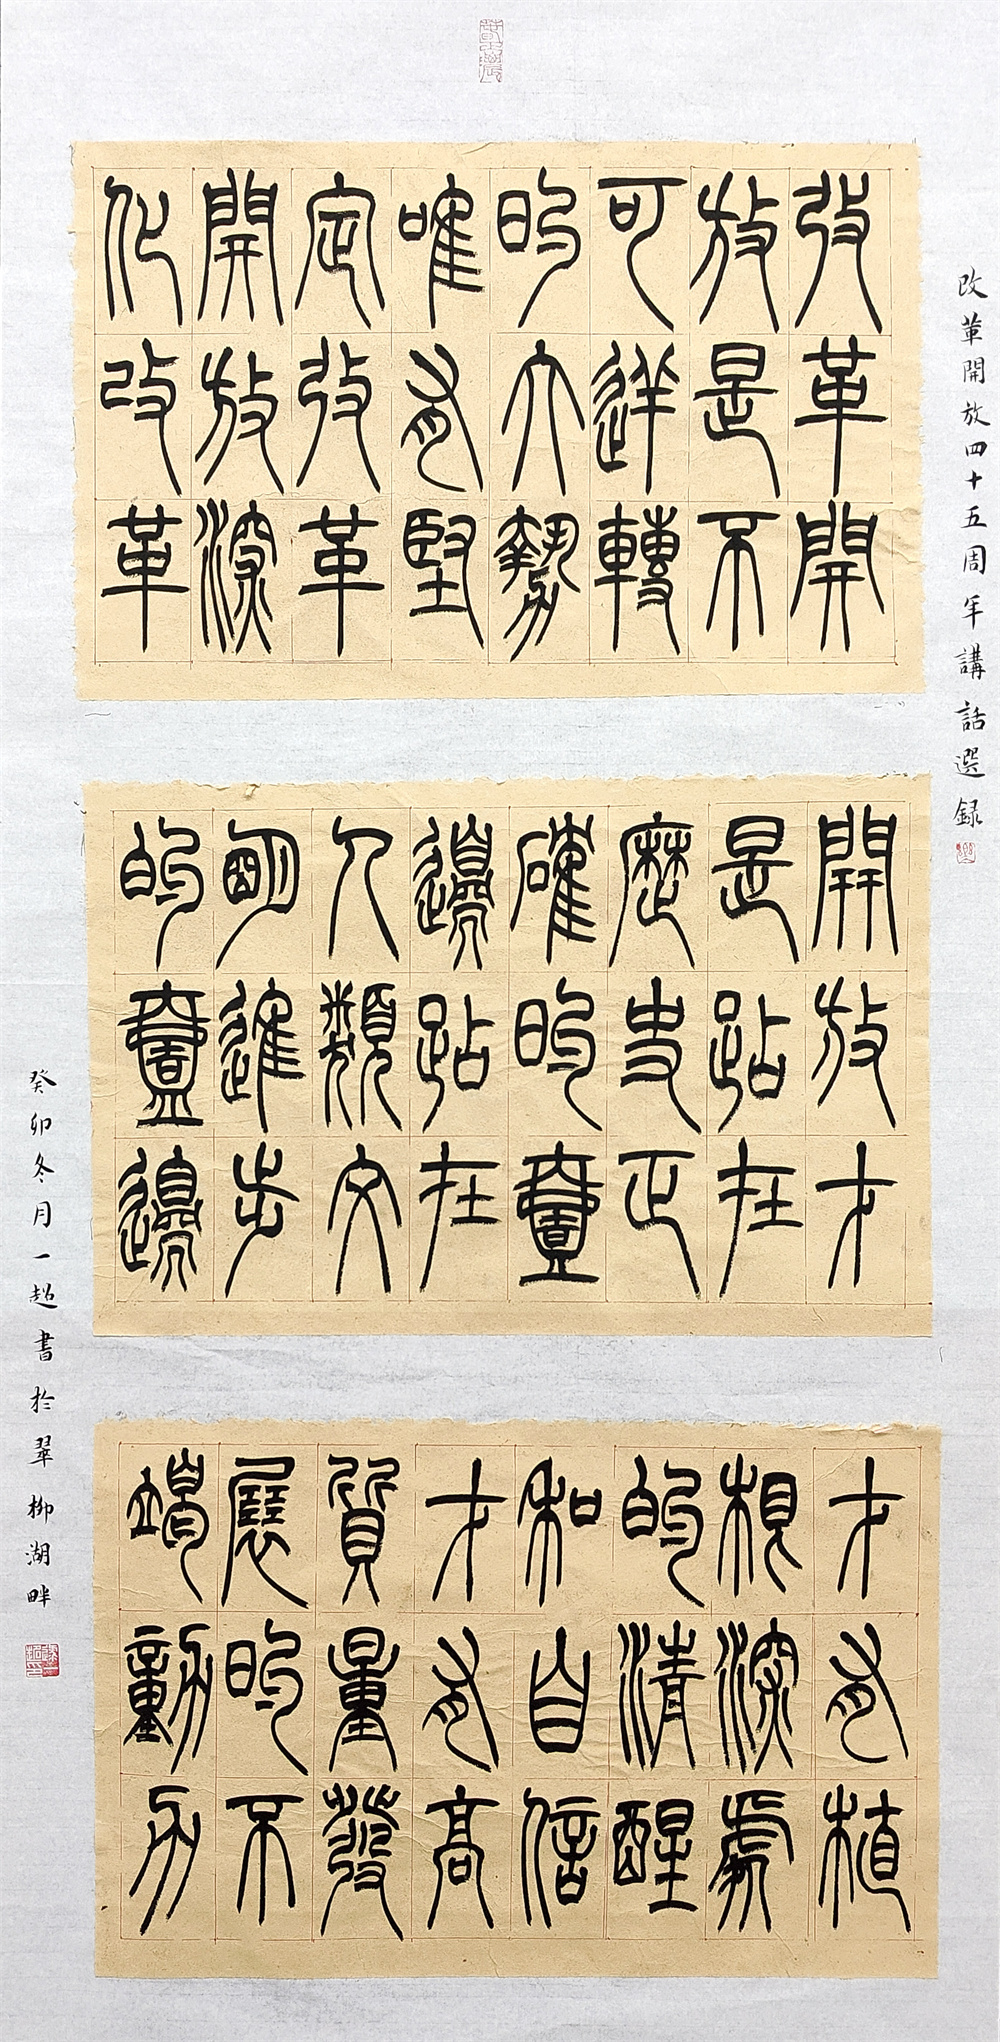 改革開放四十五周年講話選録
改革開
放是不
可逆轉
的大勢
唯有堅
定改革
開放深
化改革
開放才
是站在
歷史正
確的壹
邊站在
人類文
明進步
的壹邊
才有植
根深處
的清醒
和自信
才有高
質量發
展的不
竭動力
癸卯冬月一超書於翠柳湖畔